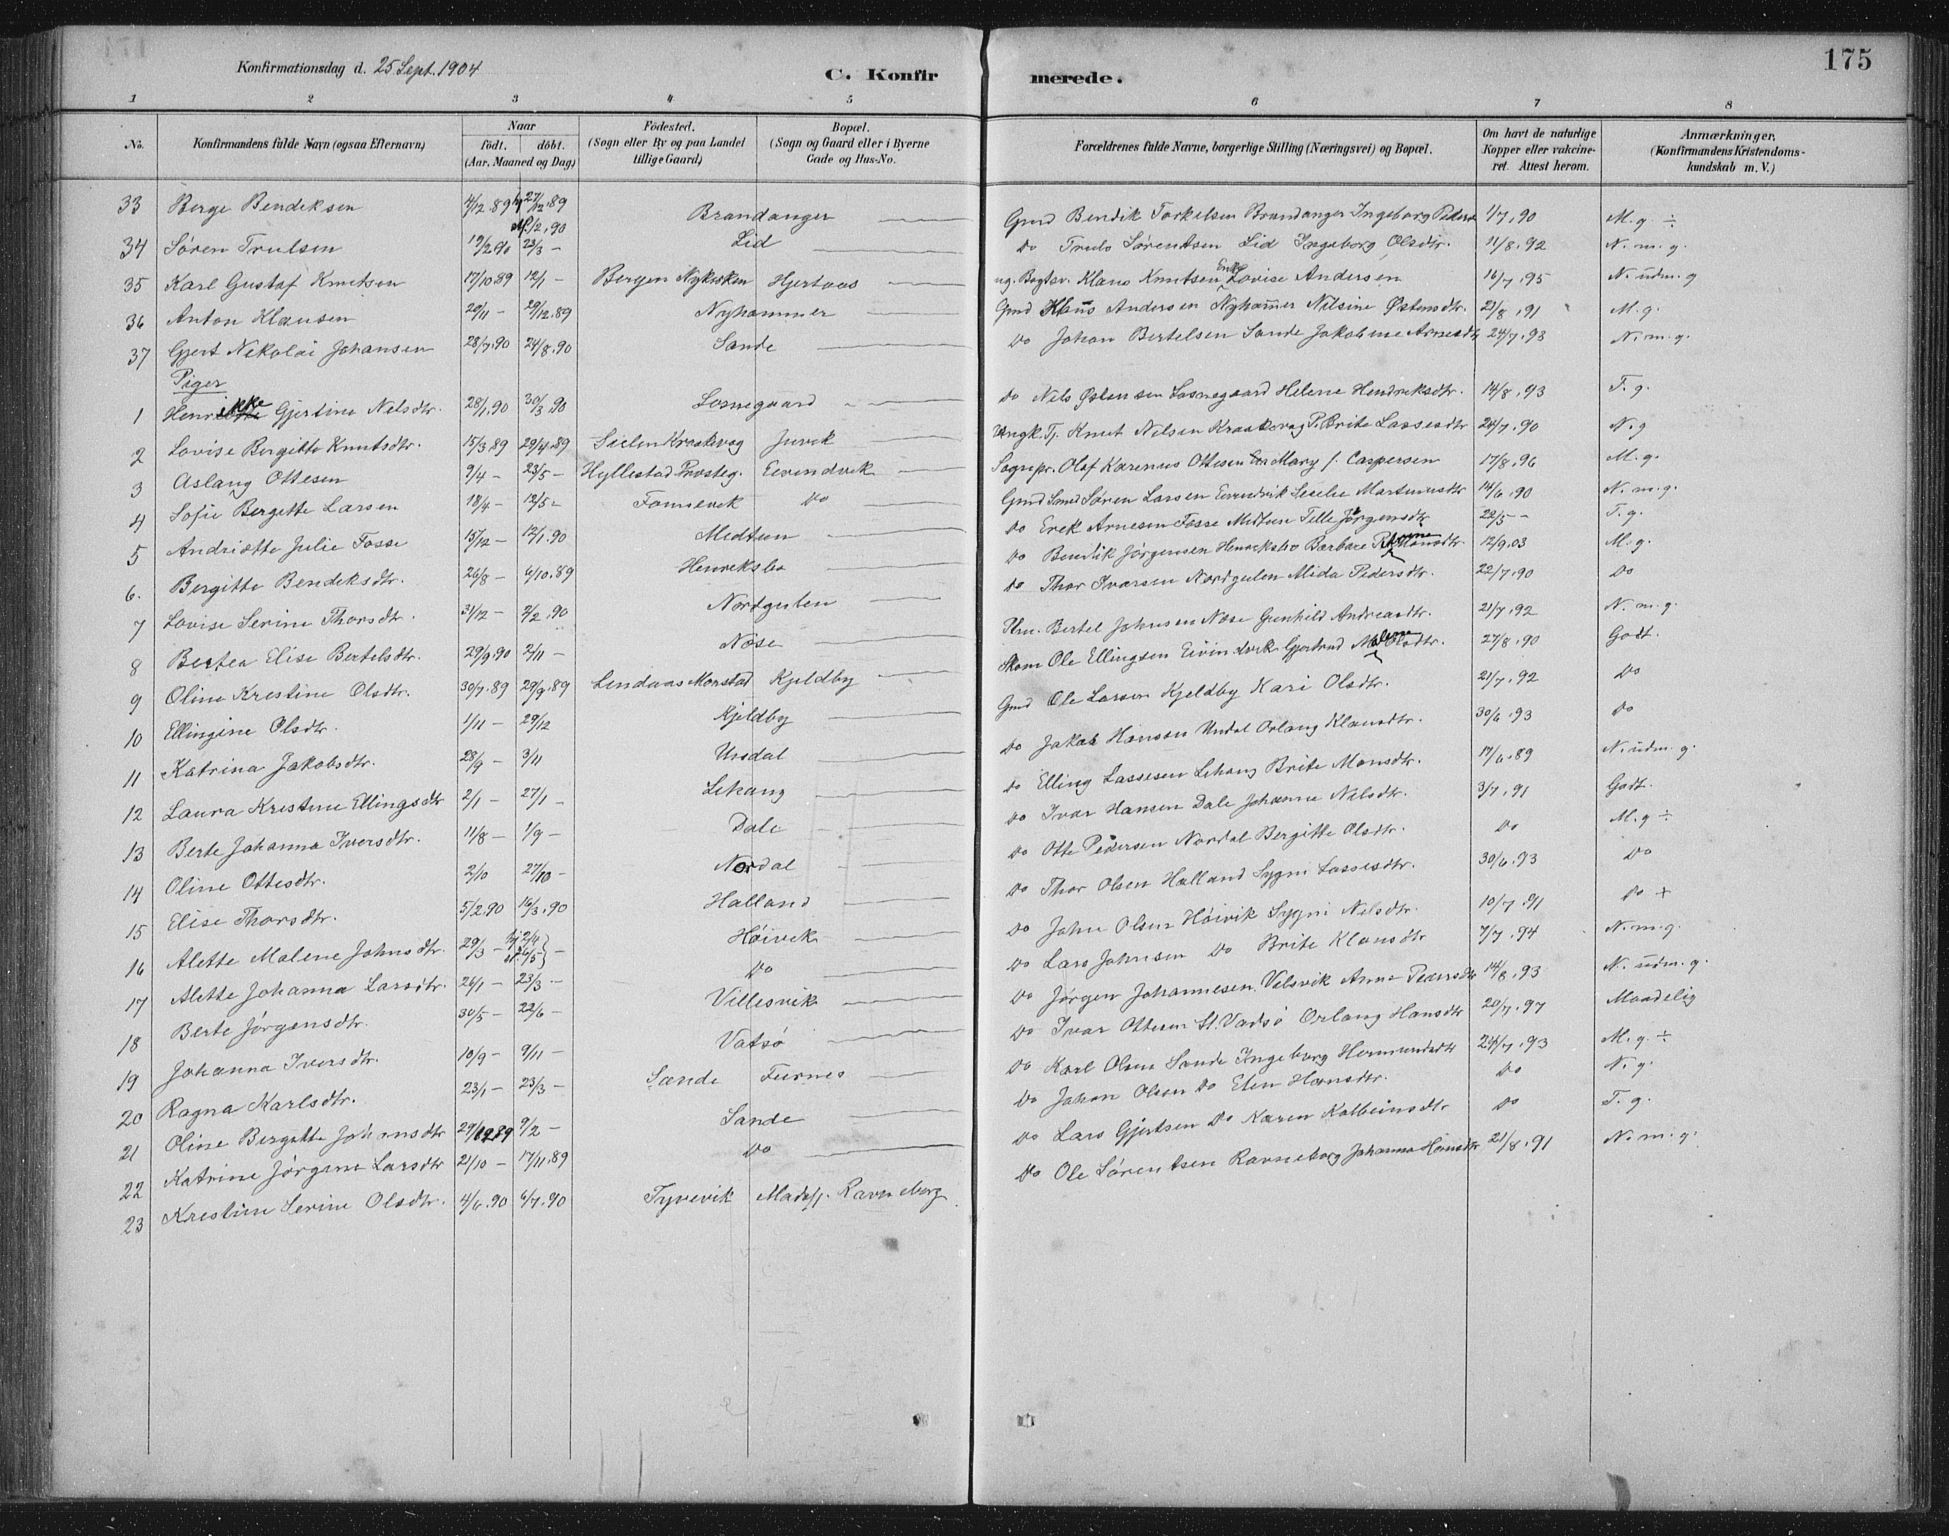 175
Konfirmationsdag d. 25 Sept. 1904
C. Konfirmerede.
1 2 3 4 5 6 7 8
No. Konfirmandens fulde Navn (ogsaa Efternavn) Naar født. døbt. (Aar, Maaned og Dag) Fødested. (Sogn eller By og paa Landet tillige Gaard) Bopæl. (Sogn og Gaard eller i Byerne Gade og Hus-No. Forældrenes fulde Navne, borgerlige Stilling (Næringsvei) og Bopæl. Om havt de naturlige Kopper eller vakcineret. Attest herom. Anmærkninger. (Konfirmandens Kristendomskundskab m. V.)
33 Berge Bendiksen 4/12.89 27/12.89 1/2.90 Brandanger Gmd Bendik Torkelsen Brandanger Ingeborg 1/7.90 M. g. ÷
34 Søren Trulsen 19/2.90 23/3 – Lid Do Truls Sørentsen Lid Ingeborg Olsdtr. 11/8.92 N. m. g.
35 Karl Gustaf Knutsen 17/10.89 12/1 – Bergen Nykirken Hjertaas Klaus Knutsen Enke Lovise Andersen 16/7.95 N. udm. g
36 Anton Klausen 22/11 – 29/12.89 Nyhammer Gmd Klaus Andersen Nyhammer Nilsine Østensdtr. 21/8.91 M. g.
37 Gjert Nikolai Johansen 28/7.90 24/8.90 Sande Do Johan Bertelsen Sande Jakobine Arnesdtr 24/7.93 N. m. g.
Piger
1 Henrikke Gjertine Nilsdtr. 28/1.90 30/3.90 Losnegaard Do Nils Østensen Losnegaard Helene Hendriksdtr. 14/8.93 T. g.
2 Lovise Bergitte Knutsdtr. 15/3.89 29/4.89 Juvik Ungk. Tj. Knut Nilsen Kraakevag P. Brite Lassesdtr 24/7.90 N. g
3 Aslaug Ottesen 9/4 – 23/5 – Hyllestad Prosteg. Eivendvik Olaf Karenus Ottesen Mary f. Caspersen 17/8.96 M. g.
4 Sofie Bergitte Larsen 18/4 – 12/5 – Fonsevik Do Gmd Søren Larsen Eivendvik Martinusdtr 14/6.90 N. m. g.
5 Andriætte Julie Fosse 15/12 – 12/1.90 Midtun Do Erik Arnesen Fosse Midtun Tille Jørgensdtr 22/5 – T. g.
6. Bergitte Bendiksdtr. 26/8 – 6/10.89 Henriksbo Do Bendik Jørgensen Henriksbo Barbare 12/9.03 M. g.
7 Lovise Serine Thorsdtr. 31/12 – 2/2.90 Nordgulen Do Thor Ivarsen Nordgulen Mida Pedersdtr. 22/7.90 Do
8 Bertea Elise Bertelsdtr. 29/9.90 2/11 – Nose Bertel Johnsen Nose Gunhild Andreasdtr. 21/7.92 N. m. g.
9 Oline Kristine Olsdtr. 30/7.89 29/9.89 Lindaas Monstad Kjeldby Skom Ole Ellingsen Eivindvik Gjertrud Malene Olsdtr. 27/8.90 Godt.
10 Ellingine Olsdtr. 1/11 – 29/12 Kjeldby Gmd Ole Larsen Kjeldby Kari Olsdtr. 21/7.92 Do
11 Katrina Jakobsdtr. 28/9 – 3/11 Undal Do Jakob Hansen Undal Orlaug Klausdtr. 30/6.93 Do
12 Laura Kristine Ellingsdtr 2/1 – 27/1 – Lihaug Do Elling Lassesen Lihaug Brite Monsdtr. 17/6.89 N. udm. g.
13 Berte Johanna Iversdtr. 11/8 – 1/9 – Dale Do Ivar Hansen Dale Johanne Nilsdtr. 3/7.91 Godt.
14 Oline Ottesdtr. 2/10 27/10 – Nordal Do Otte Pedersen Nordal Bergitte Olsdtr. Do M. g ÷
15 Elise Thorsdtr. 5/2.90 16/3.90 Halland Do Thor Olsen Halland Sygni Lassesdtr. 30/6.93 Do
16 Alette Malene Johnsdtr. 29/3 – 2/4 26/5 – Høivik Do John Olsen Høivik Sygni Nilsdtr. 10/7.91 Do +
17 Alette Johanna Larsdtr. 26/1 – 23/3 – Do Do Lars Johnsen Do Brite Klausdtr 7/7.94 N. m. g.
18 Berte Jørgensdtr. 30/5 – 22/6 – Villesvik Do Jørgen Johannesen Vilsvik Anna Pedersdtr 14/8.93 N. udm. g.
19 Johanna Iversdtr. 10/9 – 9/11 – Vatsø Do Ivar Ottesen St. Vadsø Orlaug Hansdtr 20/7.97 Maadelig
20 Ragna Karlsdtr. 23/1 – 23/3 – Sande Furnes Do Karl Olsen Sande Ingeborg Hermundsdtr 24/7.93 M. g. ÷
21 Oline Bergitte Johansdtr 29/12 89 9/2 – Sande Do Johan Olsen Do Elen Hansdtr. Do N. g.
22 Katrine Jørgine Larsdtr 21/10 – 17/11.89 Do Do Lars Gjertsen Do Karen Kolbeinsdtr Do T. g.
23 Kristine Serine Olsdtr. 4/6.90 6/7.90 Tyvevik Ravneberg Do Ole Sørentsen Ravneberg Johanna Hansdtr 21/8.91 N. m. g.